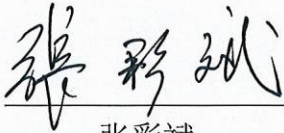 張彩斌
张彩斌